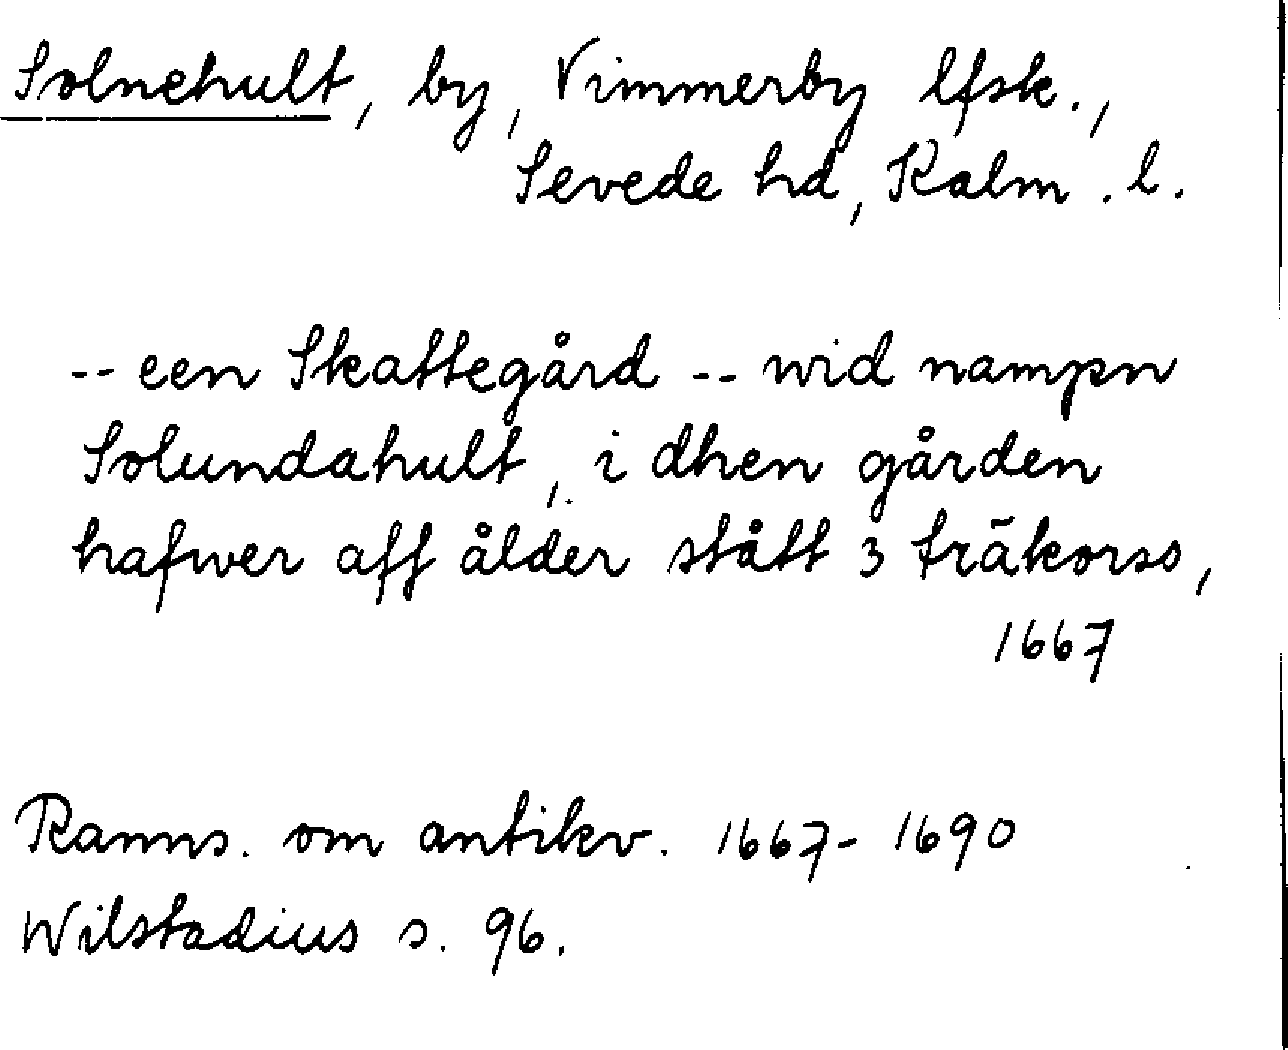 Solnehult, by, Vimmerby lfsk.,
Sevede hd, Kalm. l.
-- een Skattegård -- wid nampn
Solundahult, i dhen gården
hafwer aff ålder stått 3 träkorss,
1667
Ranns. om antikv. 1667-1690
Wilstadius s. 96.